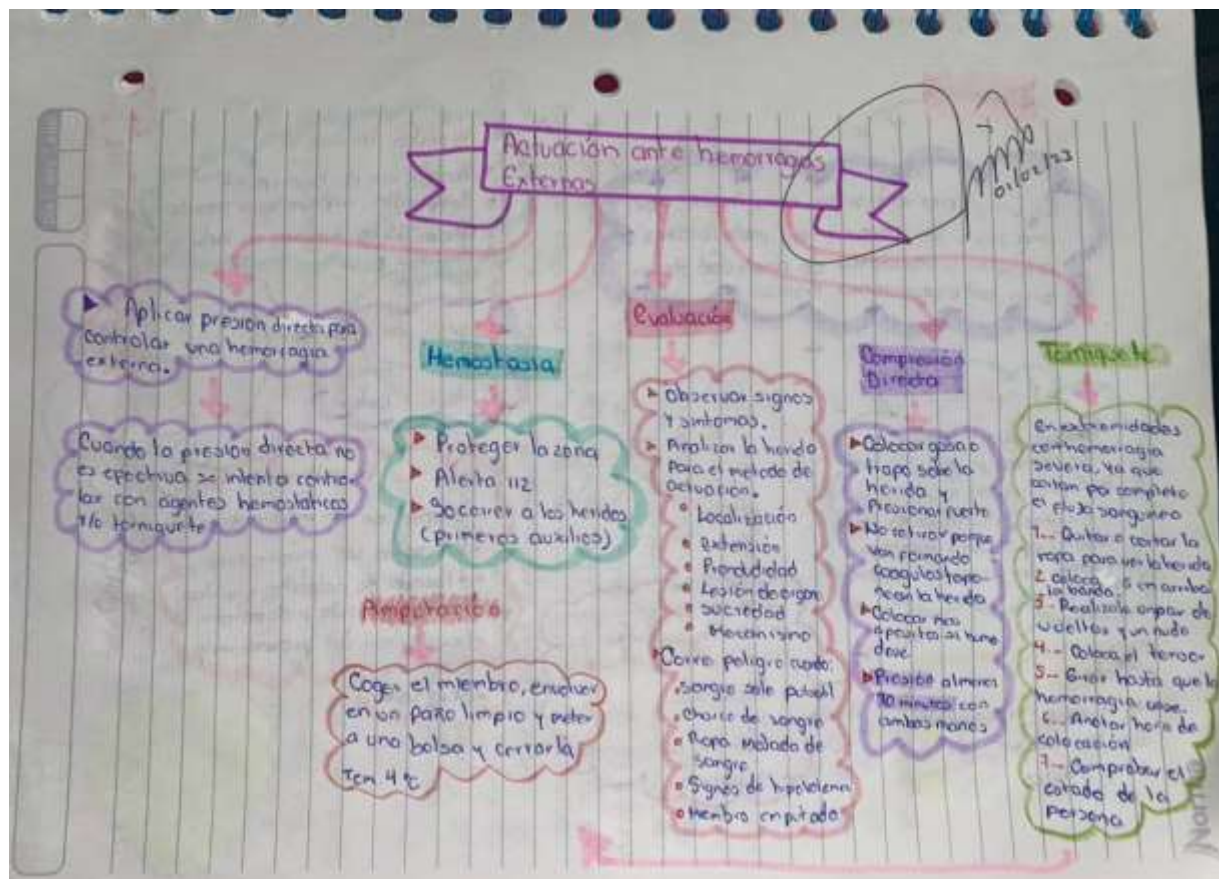 Actuación ante hemorragias
Externas
01/02/23
Aplicar presion directa para
controlar una hemorragia
externa.
Cuando la presion directa no
es epectiva se intenta contro-
lar con agentes hemostáticos
y/o torniquete
Hemostasia
Proteger la zona
Alerta 112
Socorrer a los heridos
(primeros auxilios)
Amputación
Coger el miembro, envolver
en un paño limpio y meter
a una bolsa y cerrarla
Tem 4°c
Evaluación
Observar signos
y sintomas.
Analizar la herida
para el metodo de
actuacion.
Localización
Extensión
Lesión de organ
Suciedad
Mecanismo
Corre peligro cuando:
sangre sale
Chorro de sangre
Ropa mojada de
sangre
Signos de
Miembro
Compresión
Directa
Colocar gasa o
trapo sobre la
herida y
Presionar fuerte
No retirar porque
van formando
coagulos
la herida
Colocar mas
apositos si
Presión almenos
10 minutos con
ambas manos
Torniquete
En extremidades
con hemorragia
severa, ya que
por completo
el flujo sanguineo
1.- Quitar o cortar la
ropa para ver la herida
2 coloca arriba
la banda
3.- Realizale un par de
vueltas y un nudo
4.- Coloca el
5.- Girar hasta que la
hemorragia
6.- Anotar hora de
colocación
7.- Comprobar el
estado de la
persona
Norma